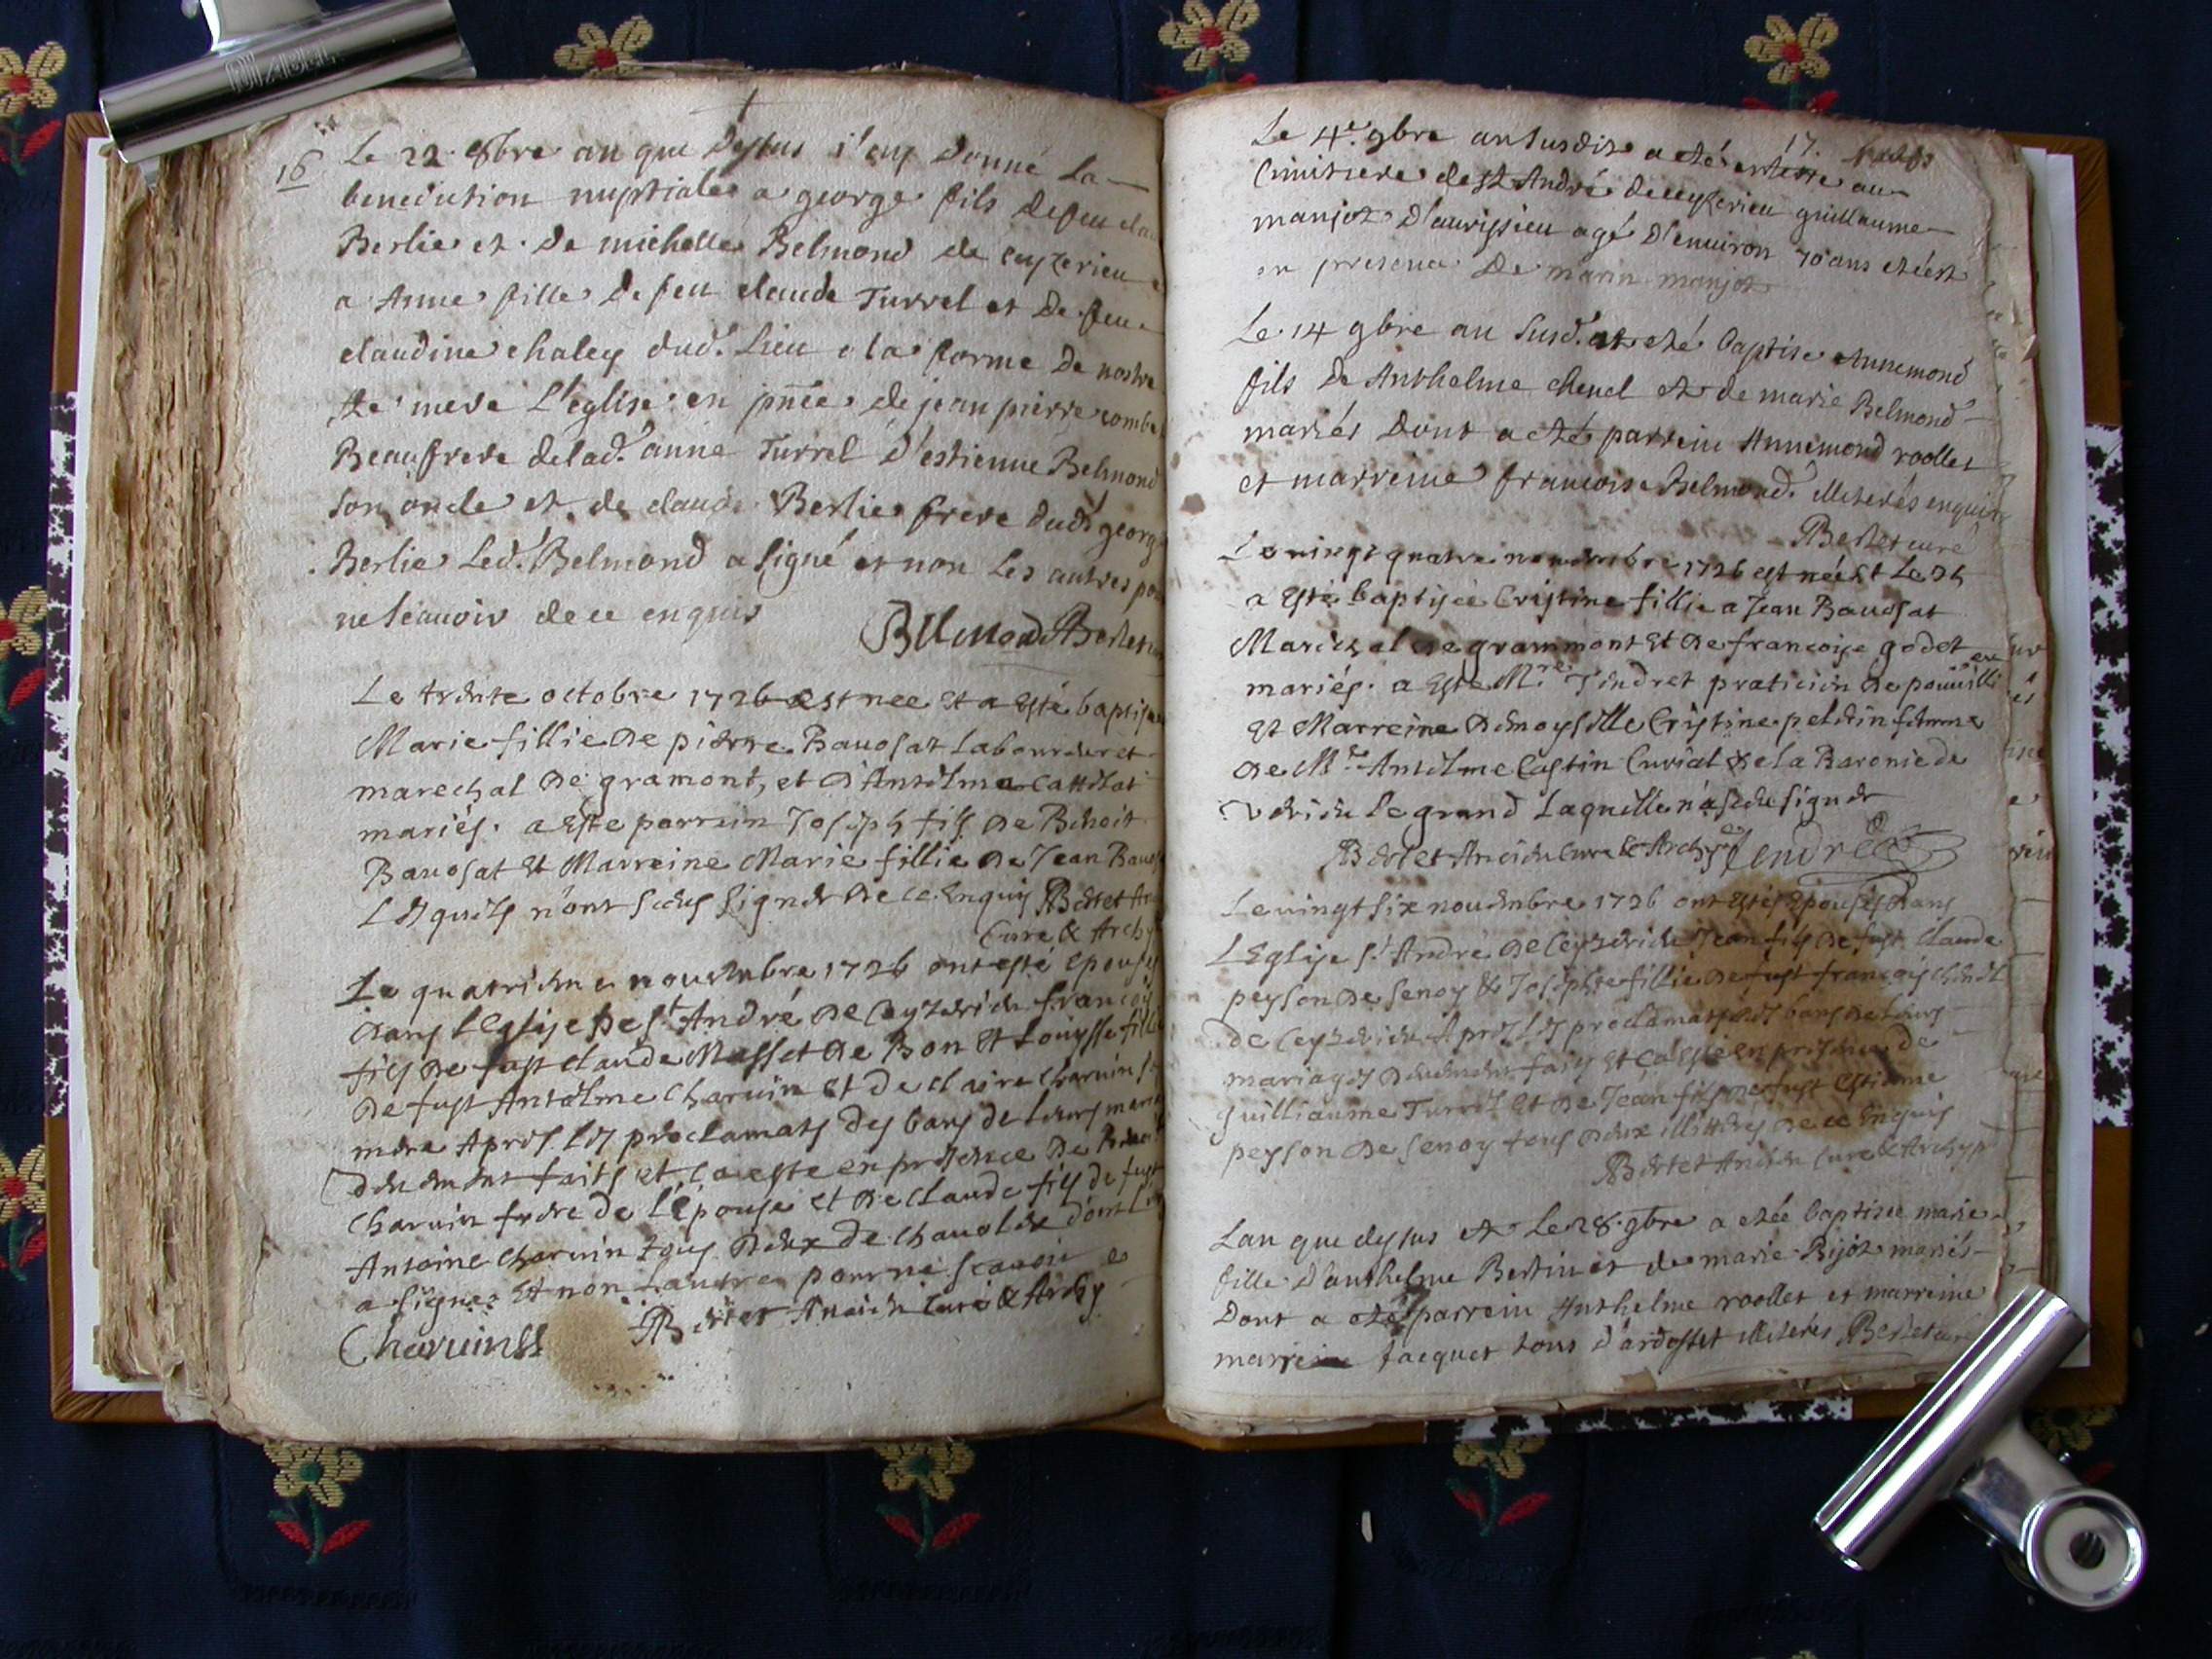 16
Le 22 8bre an que dessus j'ay donné la
benediction nuptiale a george fils de feu
Berlie et de michelle Belmond de ceyzerieu
a Anne fille de feu claude Turrel et de feu
claudine chaley dud. Lieu a la forme de nostre
Ste mere L'eglise en pnce de jean pierre combe
Beaufrere de lad. anne Turrel d'estienne Belmond
son oncle et de claude Berlie frere dud. george
Berlie Led. Belmond a signé et non Les autres pour
ne scauoir de ce enquis
Belmond Berlet
Le trente octobre 1726 est nee et a esté baptisee
Marie fillie de pierre Bauosat Laboureur et
marechal de gramont, et d'Antelme Cattelat
mariés. a Este parrein Joseph fils de Benoit
Bauosat et Marreine Marie fillie de Jean Bauosat
Lesquels n'ont sceus signer de ce Enquis Berlet
Curé & Archy
Le quatrieme nouembre 1726 ont esté epousés
dans l'Eglise de St André de Ceyzerieu francois
fils de fust claude Masset de Bon et Louysse fillie
de fust Antelme Charuin et de claire charuin sa
mere Apres les proclamats des bans de leurs maria
deuement faits et ca este en presence de
Charuin frere de l'épouse et de Claude fils de fust
Antoine Charuin tous deux de chauoley dont
a signe et non L'autre pour ne scauoir
Charuin Berlet Ancien Curé & Archy
17.
Le 4e 9bre an susdit a été enterré au
Cimitiere de St André de ceyzerieu guillaume
manjot d'aurissieu agé d'enuiron 70 ans et c'est
en presence de marin manjot
Le 14 9bre an susd. at eté baptise Annemond
fils de Anthelme chenel et de marie Belmond
mariés dont a eté parrein Annemond roollet
et marreine francoise Belmond. illeterés enquis
Berlet curé
Le vingt quatre nouembre 1726 est née et Le 25
a esté baptisée Cristine fillie a Jean Bauosat
Marechal de grammont et de francoise godet
mariés. a Este Mre Jendret praticien de
et Marreine demoyselle Cristine pelerin femme
de Mre Antelme Castin Curial de la Baronie de
Verieu le grand Laquelle n'a sceu signer
Berlet Ancien Curé & Archy Jendret
Le vingt six nouembre 1726 ont estés Epousés dans
L'Eglise St André de Ceyzerieu Jean fils de fust Claude
peyson de senoy & Josephte fillie de fust francois chenel
de Ceyzerieu Apres les proclamats des bans de leurs
mariages deuement fais et ca esté en presence de
guilliaume Turrel et de Jean fils de fust Estienne
peyson de senoy tous deux illitteres de ce Enquis
Berlet Ancien Curé & Archyp
Lan que dessus et Le 28. 9bre a etée baptisée marie
fille d'anthelme Bertin et de marie Bijot mariés
Dont a eté parrein Anthelme roollet et marreine
marreine Jacquet tous d'ardosset illeterés Berlet curé